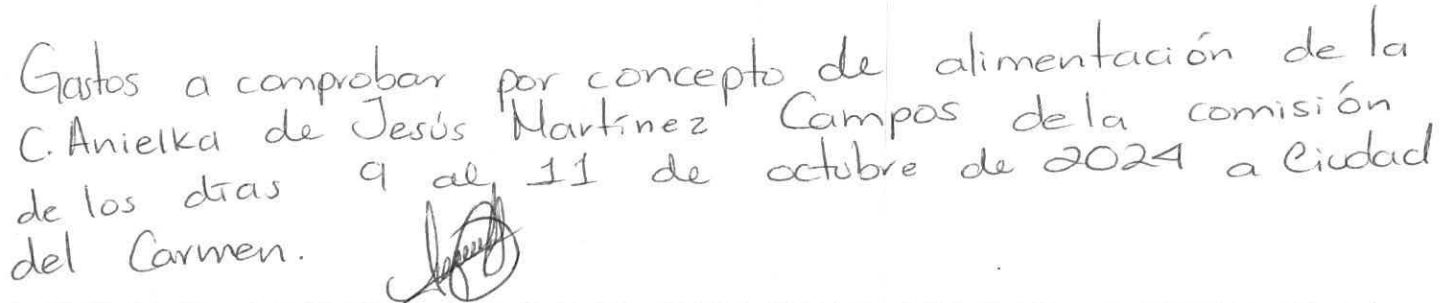 Gastos a comprobar por concepto de alimentación de la
C. Anielka de Jesús Martínez Campos de la comisión
de los días 9 al 11 de octubre de 2024 a Ciudad
del Carmen.